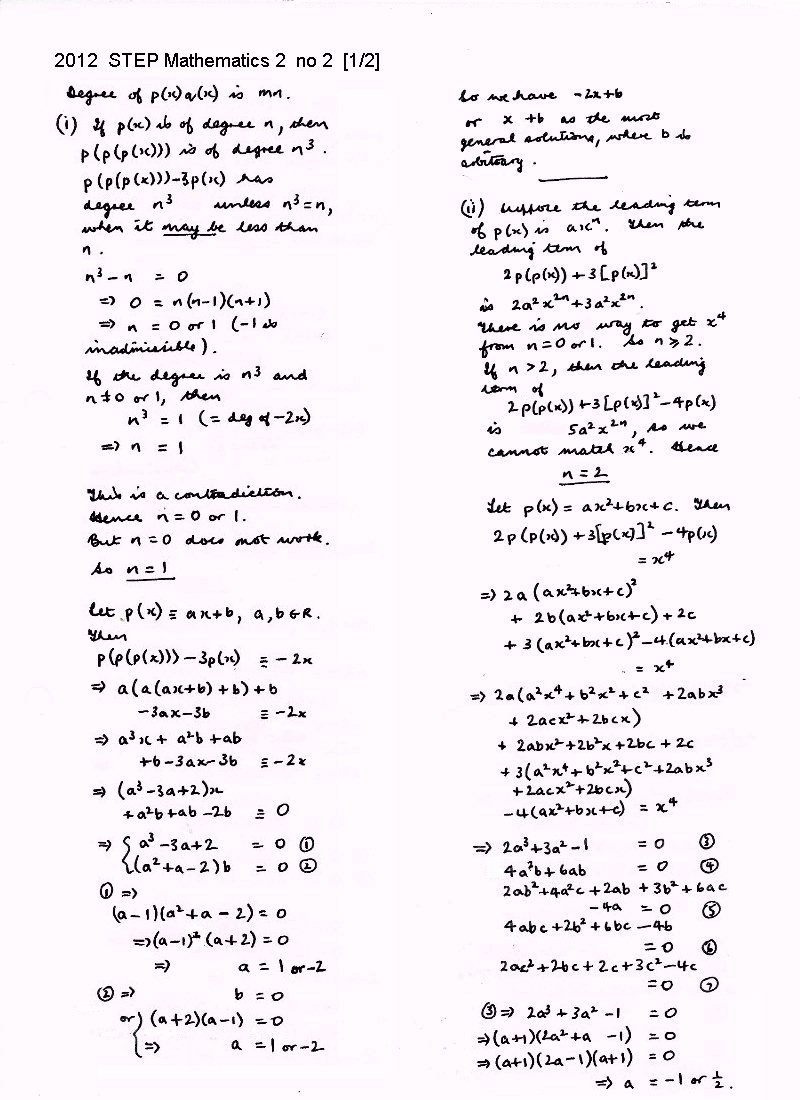 2012 STEP Mathematics 2 no 2 [1/2]
Degree of p(x)q(x) is mn.
(i) If p(x) is of degree n, then
p(p(p(x))) is of degree n³.
p(p(p(x)))-3p(x) has
degree n³ unless n³=n,
when it may be less than
n.
n³-n = 0
⇒ 0 = n(n-1)(n+1)
⇒ n = 0 or 1 (-1 is
inadmissible).
If the degree is n³ and
n≠0 or 1, then
n³ = 1 (= deg of -2x)
⇒ n = 1
This is a contradiction.
Hence n = 0 or 1.
But n=0 does not work.
So n=1
Let p(x) ≡ ax+b, a,b∈R.
Then
p(p(p(x)))-3p(x) ≡ -2x
⇒ a(a(ax+b)+b)+b
-3ax-3b ≡ -2x
⇒ a³x + a²b + ab
+b-3ax-3b ≡ -2x
⇒ (a³-3a+2)x
+a²b+ab-2b ≡ 0
⇒ { a³-3a+2 = 0 ①
(a²+a-2)b = 0 ②
① ⇒
(a-1)(a²+a-2) = 0
⇒(a-1)²(a+2) = 0
⇒ a = 1 or -2
② ⇒ b = 0
or } (a+2)(a-1) = 0
⇒ a = 1 or -2
So we have -2x+b
or x+b as the most
general solutions, where b is
arbitrary.
(ii) Suppose the leading term
of p(x) is axⁿ. Then the
leading term of
2p(p(x))+3[p(x)]²
is 2a²x²ⁿ+3a²x²ⁿ.
There is no way to get x⁴
from n=0 or 1. So n⩾2.
If n>2, then the leading
term of
2p(p(x))+3[p(x)]²-4p(x)
is 5a²x²ⁿ, so we
cannot match x⁴. Hence
n=2
Let p(x) = ax²+bx+c. Then
2p(p(x))+3[p(x)]²-4p(x)
= x⁴
⇒ 2a(ax²+bx+c)²
+ 2b(ax²+bx+c)+2c
+ 3(ax²+bx+c)²-4(ax²+bx+c)
= x⁴
⇒ 2a(a²x⁴+b²x²+c²+2abx³
+2acx²+2bcx)
+ 2abx²+2b²x+2bc+2c
+3(a²x⁴+b²x²+c²+2abx³
+2acx²+2bcx)
-4(ax²+bx+c) = x⁴
⇒ 2a³+3a²-1 = 0 ③
4a²b+6ab = 0 ④
2ab²+4a²c+2ab+3b²+6ac
-4a = 0 ⑤
4abc+2b²+6bc-4b
= 0 ⑥
2ac²+2bc+2c+3c²-4c
= 0 ⑦
③⇒ 2a³+3a²-1 = 0
⇒(a+1)(2a²+a-1) = 0
⇒(a+1)(2a-1)(a+1) = 0
⇒ a = -1 or ½.